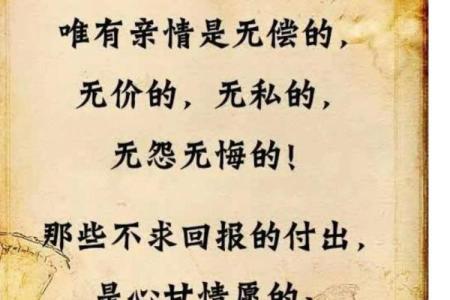 唯有亲情是无偿的，
无价的，无私的，
无怨无悔的！
那些不求回报的付出，
是心甘情愿的；